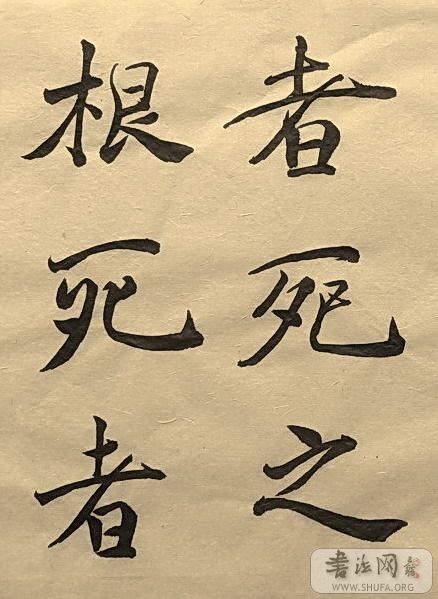 者死之
根死者
書法网
WWW.SHUFA.ORG